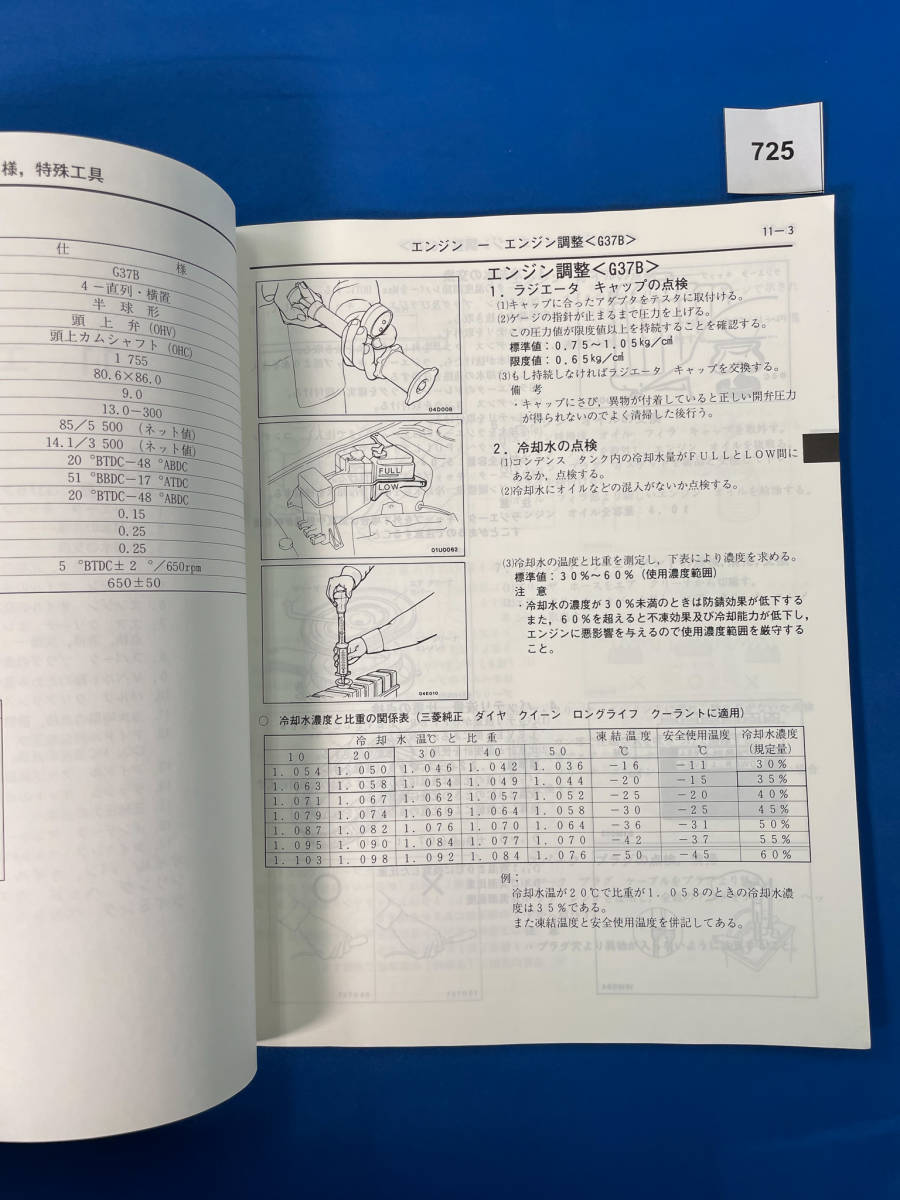 725
様，特殊工具
仕 様
G37B
4－直列・横置
半 球 形
頭 上 弁 (OHV)
頭上カムシャフト (OHC)
1 755
80.6×86.0
9.0
13.0－300
85／5 500 （ネット値）
14.1／3 500 （ネット値）
20 °BTDC－48 °ABDC
51 °BBDC－17 °ATDC
20 °BTDC－48 °ABDC
0.15
0.25
0.25
5 °BTDC± 2 °／650rpm
650±50
エンジン － エンジン調整<G37B>
11－3
エンジン調整<G37B>
1．ラジエータ キャップの点検
(1)キャップに合ったアダプタをテスタに取付ける。
(2)ゲージの指針が止まるまで圧力を上げる。
この圧力値が限度値以上を持続することを確認する。
標準値：0.75～1.05kg／㎠
限度値：0.65kg／㎠
(3)もし持続しなければラジエータ キャップを交換する。
備 考
・キャップにさび，異物が付着していると正しい開弁圧力
が得られないのでよく清掃した後行う。
04D008
2．冷却水の点検
(1)コンデンス タンク内の冷却水量がＦＵＬＬとＬＯＷ間に
あるか，点検する。
(2)冷却水にオイルなどの混入がないか点検する。
FULL
LOW
01U0062
(3)冷却水の温度と比重を測定し，下表により濃度を求める。
標準値：30％～60％（使用濃度範囲）
注 意
・冷却水の濃度が30％未満のときは防錆効果が低下する
また，60％を超えると不凍効果及び冷却能力が低下し，
エンジンに悪影響を与えるので使用濃度範囲を厳守する
こと。
04E010
○ 冷却水濃度と比重の関係表（三菱純正 ダイヤ クイーン ロングライフ クーラントに適用）
冷 却 水 温℃ と 比 重 凍結温度 安全使用温度 冷却水濃度
10 20 30 40 50 ℃ ℃ (規定量)
1．054 1．050 1．046 1．042 1．036 －16 －11 30％
1．063 1．058 1．054 1．049 1．044 －20 －15 35％
1．071 1．067 1．062 1．057 1．052 －25 －20 40％
1．079 1．074 1．069 1．064 1．058 －30 －25 45％
1．087 1．082 1．076 1．070 1．064 －36 －31 50％
1．095 1．090 1．084 1．077 1．070 －42 －37 55％
1．103 1．098 1．092 1．084 1．076 －50 －45 60％
例：
冷却水温が20℃で比重が1．058のときの冷却水濃
度は35％である。
また凍結温度と安全使用温度を併記してある。